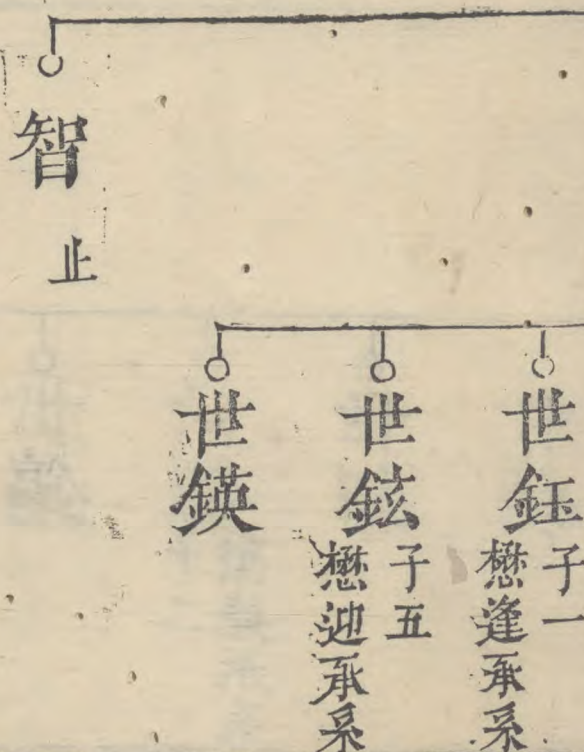 世鈺
子一
懋逢承系
世鉉
子五
懋迪承系
世鍈
智
止